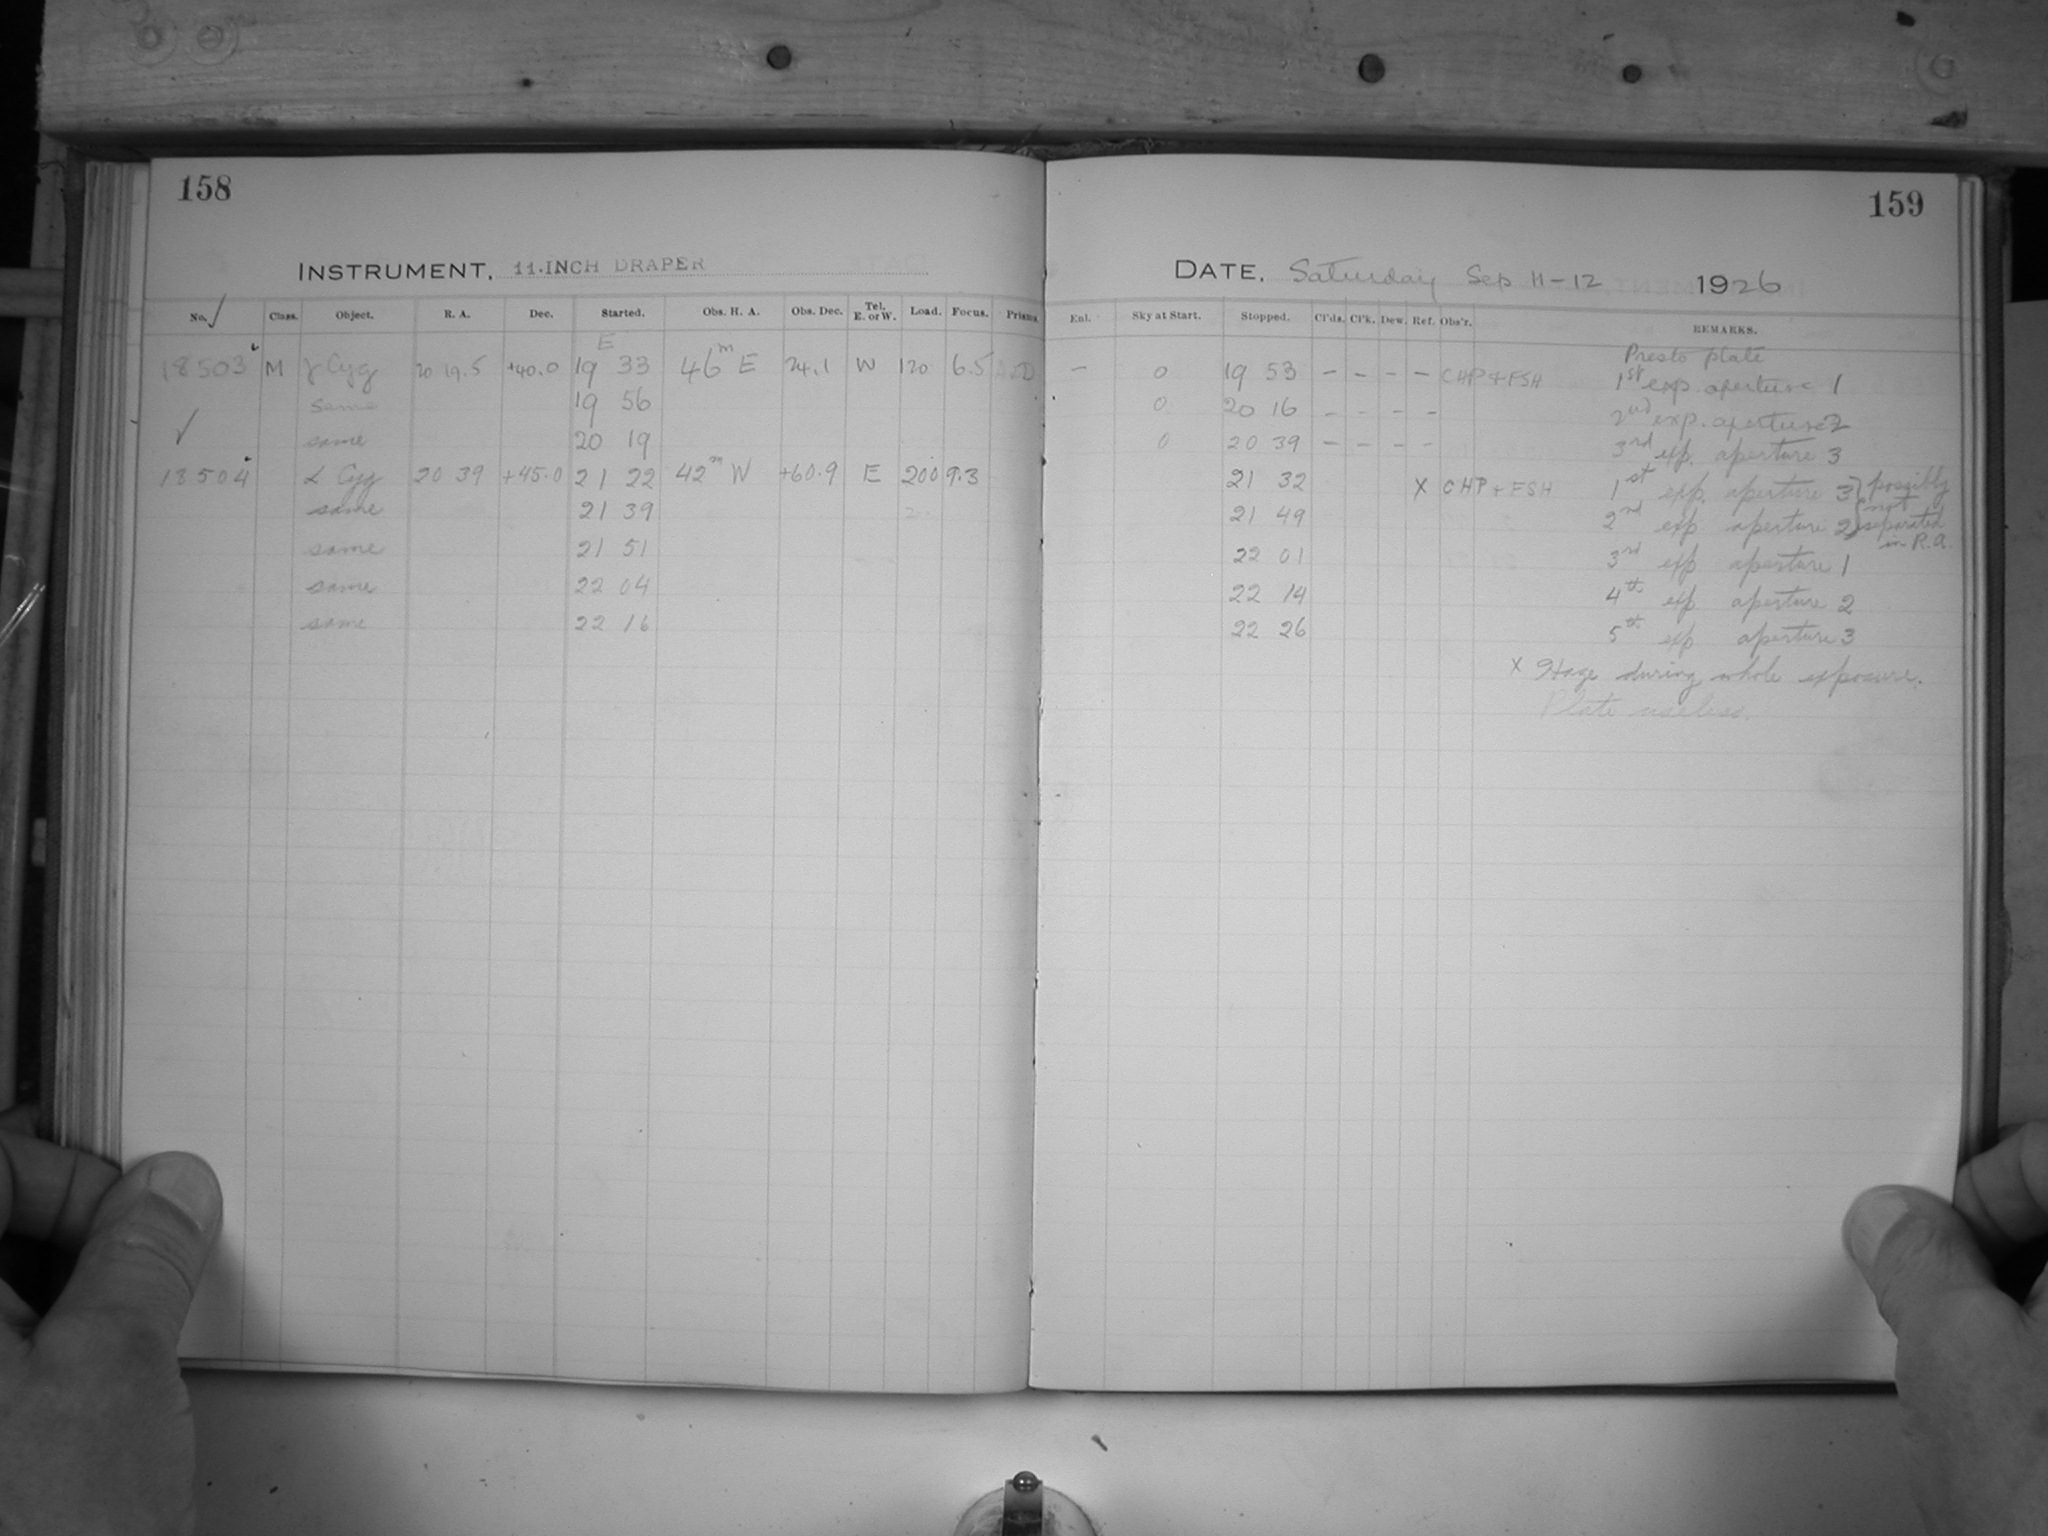 158
INSTRUMENT. 11-INCH DRAPER
No. ✓ Class. Object. R. A. Dec. Started. Obs. H. A. Obs. Dec. Tel. E. or W. Load. Focus. Prisms
E
18503 M γ Cyg 20 19.5 +40.0 19 33 46m E 24.1 W 120 6.5
same 19 56
✓ same 20 19
18504 α Cyg 20 39 +45.0 21 22 42m W +60.9 E 200 9.3
same 21 39
same 21 51
same 22 04
same 22 16
159
DATE. Saturday Sep 11-12 1926
Enl. Sky at Start. Stopped. Cl'ds. Cl'k. Dew. Ref. Obs'r. REMARKS.
Presto plate
– 0 19 53 – – – – CHP + FSH 1st exp. aperture 1
0 20 16 – – – – 2nd exp. aperture 2
0 20 39 – – – – 3rd exp. aperture 3
21 32 X CHP + FSH 1st exp. aperture 3 } possibly
21 49 2nd exp aperture 2 } not separated
in R.A.
22 01 3rd exp aperture 1
22 14 4th exp aperture 2
22 26 5th exp aperture 3
X Haze during whole exposure.
Plate useless.